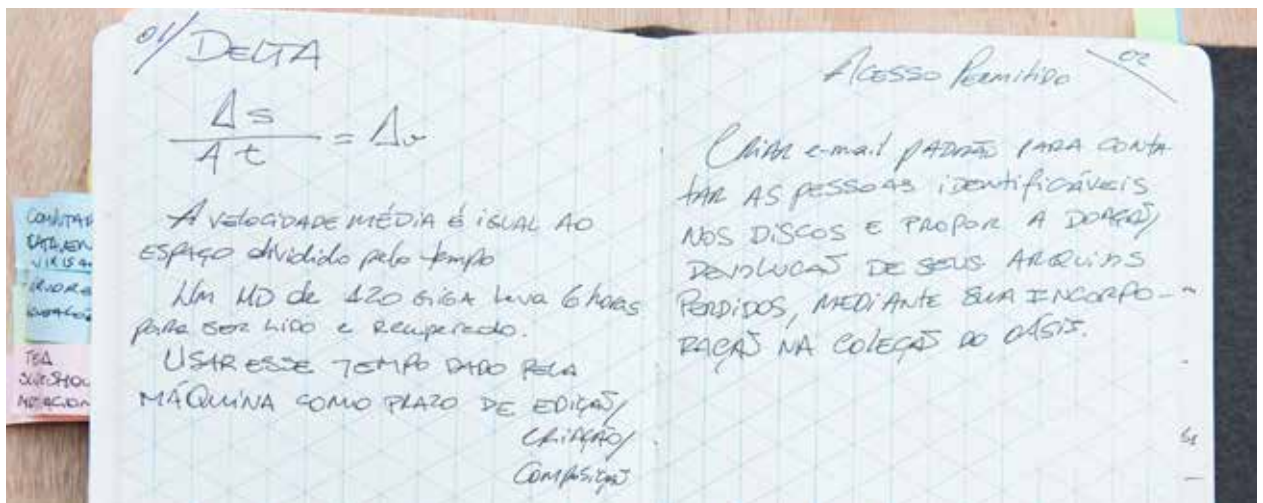 01/ DELTA
Δs
Δt = Δv
A velocidade média é igual ao
espaço dividido pelo tempo
Um HD de 120 giga leva 6 horas
para ser lido e recuperado.
Usar esse tempo dado pela
máquina como prazo de edição/
criação/
composição
02
Acesso Permitido
Criar e-mail padrão para conta
tar as pessoas identificáveis
nos discos e propor a doação/
devolução de seus arquivos
perdidos, mediante sua incorpo-
ração na coleção do oásis.
TEA